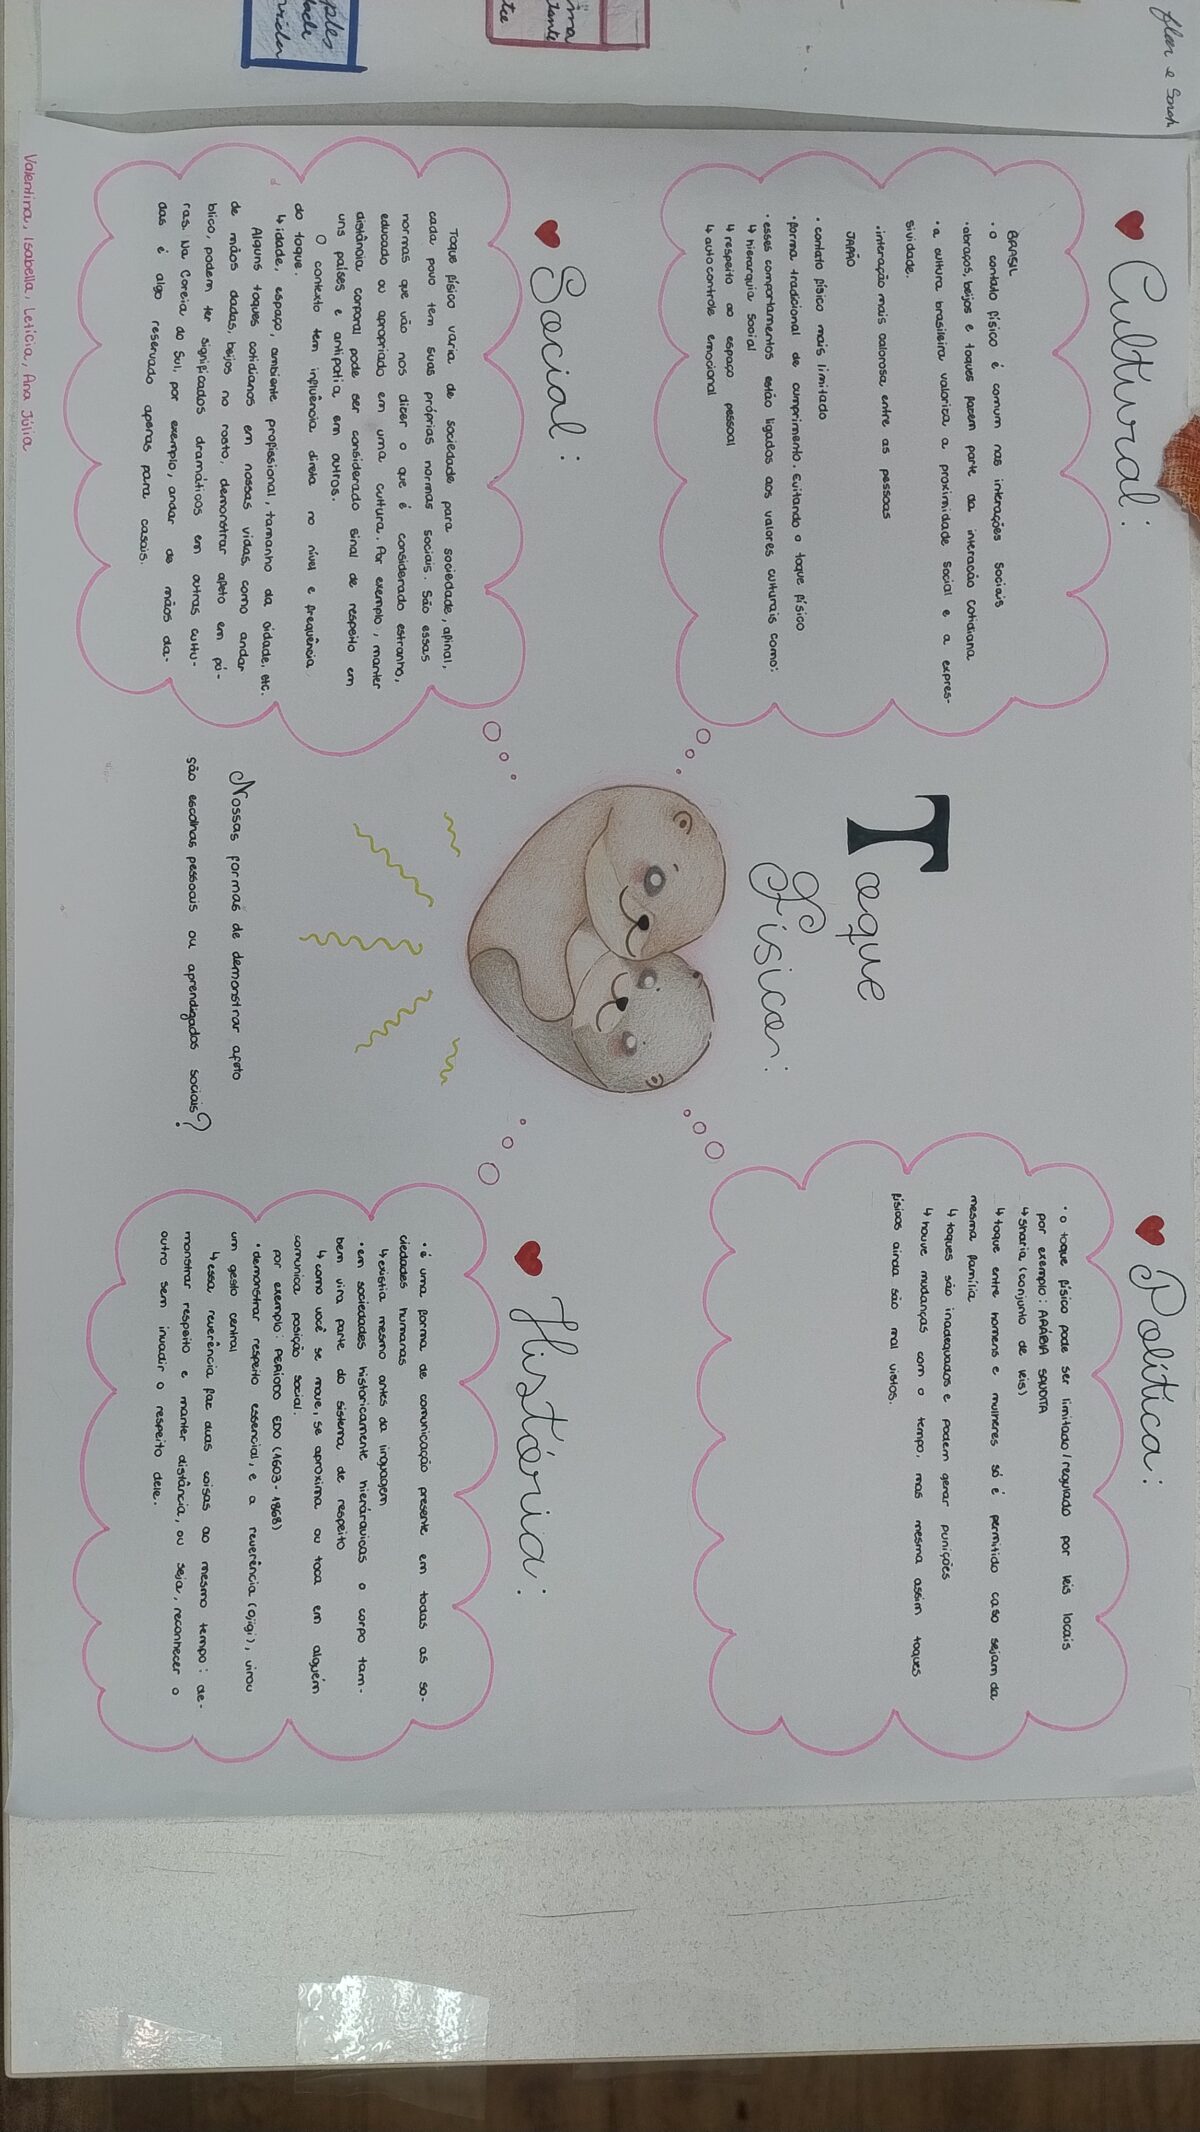 Toque
Físico:
Cultural:
BRASIL
• o contato físico é comum nas interações sociais
• abraços, beijos e toques fazem parte da interação cotidiana
• a cultura brasileira valoriza a proximidade social e a expres-
sividade.
• interação mais calorosa entre as pessoas
JAPÃO
• contato físico mais limitado
• forma tradicional de cumprimento. Evitando o toque físico
• esses comportamentos estão ligados aos valores culturais como:
↳ hierarquia social
↳ respeito ao espaço pessoal
↳ auto controle emocional
Política:
• o toque físico pode ser limitado/regulado por leis locais
por exemplo: ARÁBIA SAUDITA
↳ sharia (conjunto de leis)
↳ toque entre homens e mulheres só é permitido caso sejam da
mesma família
↳ toques são inadequados e podem gerar punições
↳ houve mudanças com o tempo, mas mesma assim toques
físicos ainda são mal vistos.
Social:
Toque físico varia de sociedade para sociedade, afinal,
cada povo tem suas próprias normas sociais. São essas
normas que vão nos dizer o que é considerado estranho,
educado ou apropriado em uma cultura. Por exemplo, manter
distância corporal pode ser considerado sinal de respeito em
uns países e antipatia em outros.
O contexto tem influência direta no nível e frequência
do toque.
↳ idade, espaço, ambiente profissional, tamanho da cidade, etc.
Alguns toques cotidianos em nossas vidas, como andar
de mãos dadas, beijos no rosto, demonstrar afeto em pú-
blico, podem ter significados dramáticos em outras cultu-
ras. Na Coreia do Sul, por exemplo, andar de mãos da-
das é algo reservado apenas para casais.
História:
• é uma forma de comunicação presente em todas as so-
ciedades humanas
↳ existia mesmo antes da linguagem
• em sociedades historicamente hierárquicas o corpo tam-
bém vira parte do sistema de respeito
↳ como você se move, se aproxima ou toca em alguém
comunica posição social.
por exemplo: PERÍODO EDO (1603 - 1868)
• demonstrar respeito essencial, e a reverência (ojigi), virou
um gesto central
↳ essa reverência faz duas coisas ao mesmo tempo: de-
monstrar respeito e manter distância, ou seja, reconhecer o
outro sem invadir o respeito dele.
Nossas formas de demonstrar afeto
são escolhas pessoais ou aprendizados sociais?
Valentina, Isabella, Letícia, Ana Júlia
e Sarah